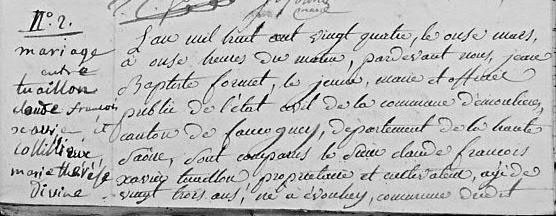 N°. 2.
mariage
entre
tuaillon
claude françois
xavier et
Collilieux
marie thérèse
Divine
L'an mil huit cent vingt quatre, le onse mars,
à onse heures du matin, pardevant nous, jean
Baptiste formet, le jeune, maire et officier
public de l'état civil de la commune
canton de faucogney, département de la haute
Saône, Sont comparus le Sieur claude françois
xavier tuaillon propriétaire et cultivateur, agé de
vingt trois ans, né à évouhey, commune dudit